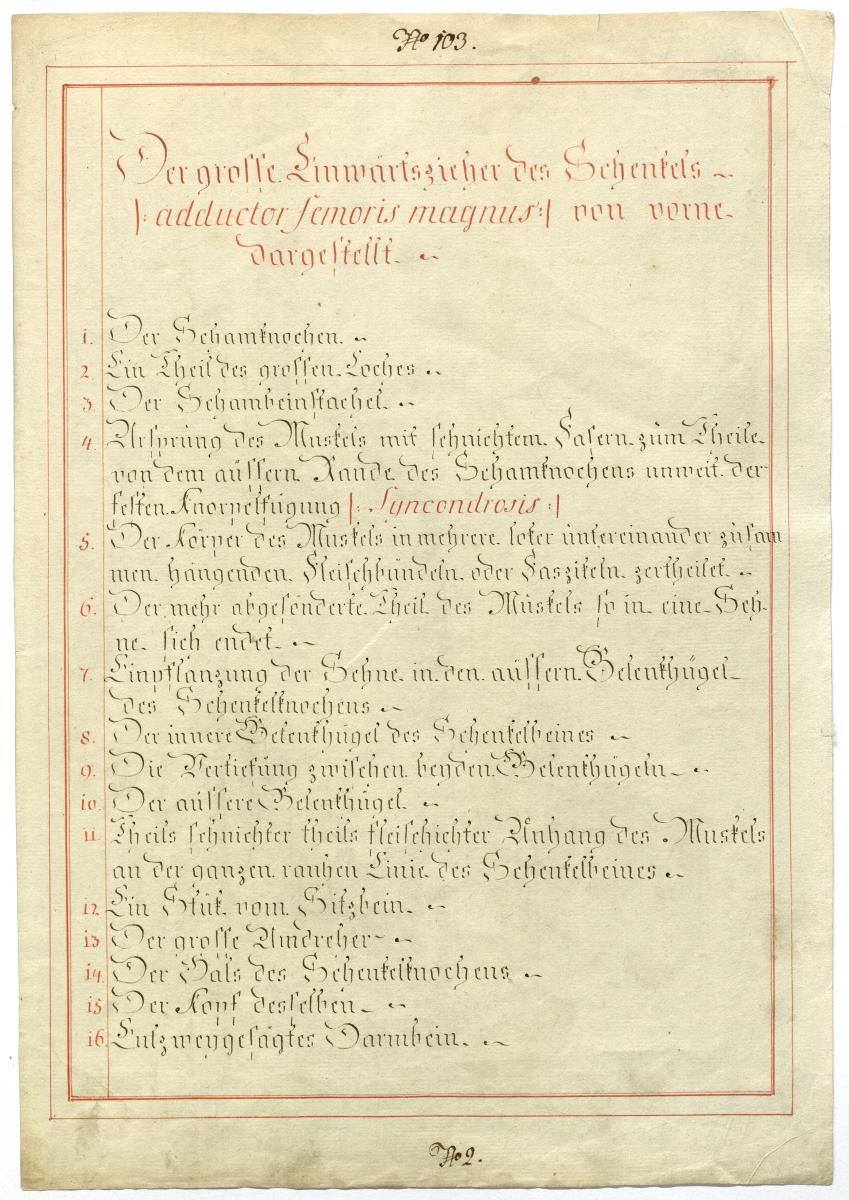 No 103.
Der grosse Einwärtszieher des Schenkels
|: adductor femoris magnus :| von vorne
dargestellt.
1. Der Schamknochen.
2. Ein Theil des grossen Loches
3. Der Schambeinstachel.
4. Ursprung des Muskels mit sehnichtem Fasern zum Theile
von dem äussern Rande des Schamknochens unweit der
festen Knorpelfügung |: Syncondrosis :|
5. Der Körper des Muskels in mehrere loker untereinander zusam
men hängenden Fleischbündeln oder Faszikeln zertheilet.
6. Der mehr abgesönderte Theil des Muskels so in eine Seh-
ne sich endet.
7. Einpflanzung der Sehne in den äussern Gelenkhügel
des Schenkelknochens
8. Der innere Gelenkhügel des Schenkelbeines
9. Die Vertiefung zwischen beyden Gelenkhügeln
10. Der äussere Gelenkhügel.
11. Theils sehnichter theils fleischichter Anhang des Muskels
an der ganzen rauhen Linie des Schenkelbeines
12. Ein Stük vom Sitzbein.
13. Der grosse Umdreher
14. Der Hals des Schenkelknochens
15. Der Kopf desselben
16. Entzweygesägtes Darmbein.
No 2.